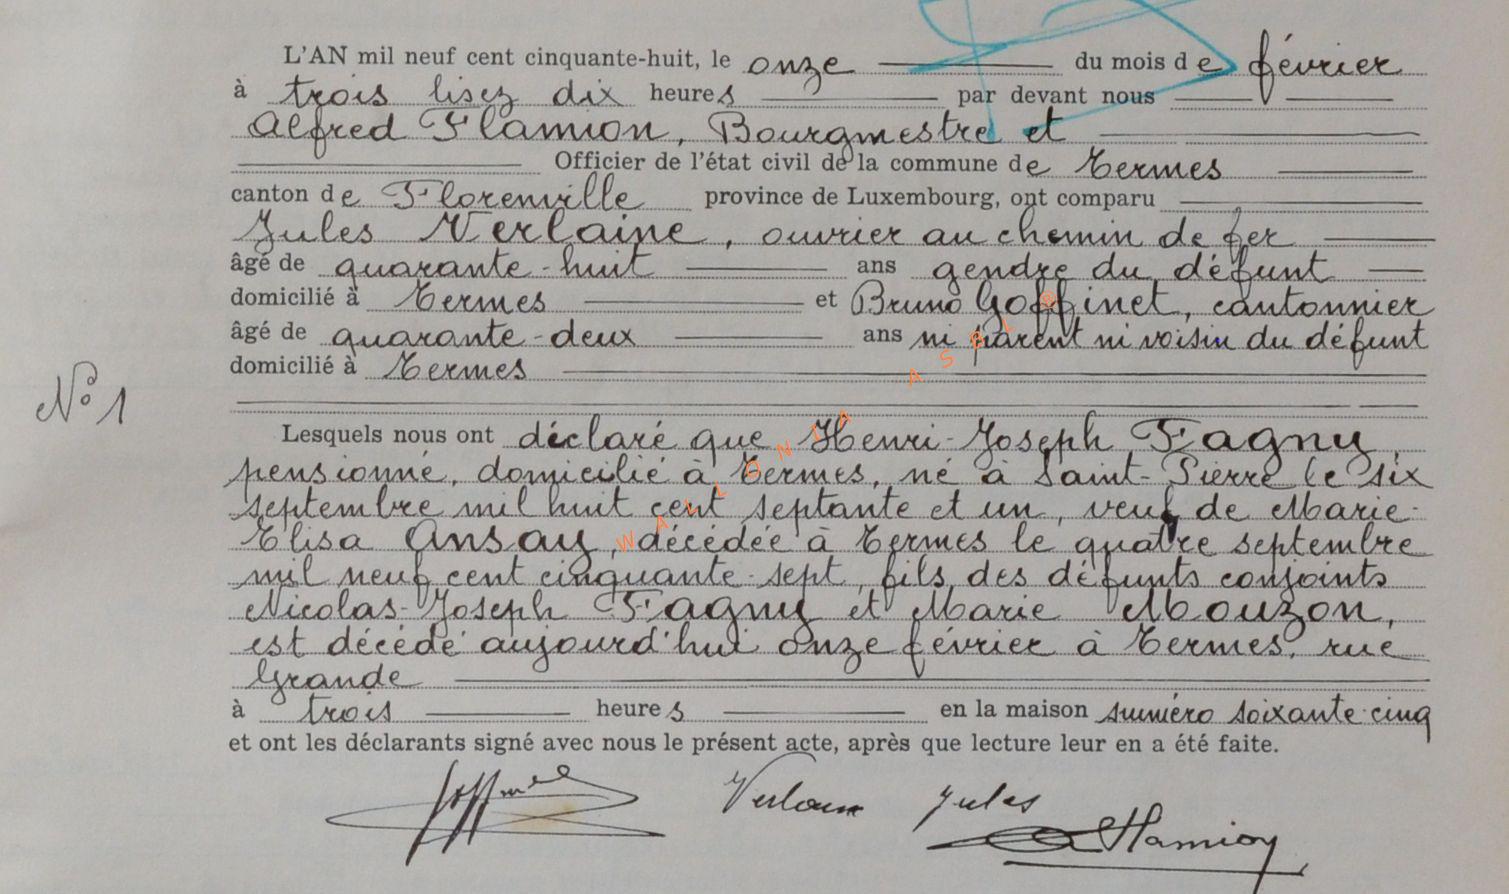 L'AN mil neuf cent cinquante-huit, le onze du mois de février
à trois lisez dix heures par devant nous
Alfred Flamion, Bourgmestre et
Officier de l'état civil de la commune de Termes
canton de Florenville province de Luxembourg, ont comparu
Jules Verlaine, ouvrier au chemin de fer
âgé de quarante-huit ans gendre du défunt
domicilié à Termes et Bruno Goffinet, cantonnier
âgé de quarante-deux ans ni parent ni voisin du défunt
domicilié à Termes
N° 1
Lesquels nous ont déclaré que Henri-Joseph Fagny,
pensionné, domicilié à Termes, né à Saint-Pierre le six
septembre mil huit cent septante et un, veuf de Marie-
Elisa Ansay, décédée à Termes le quatre septembre
mil neuf cent cinquante-sept, fils des défunts conjoints
Nicolas-Joseph Fagny et Marie Mouzon,
est décédé aujourd'hui onze février à Termes, rue
Grande
à trois heures en la maison numéro soixante-cinq
et ont les déclarants signé avec nous le présent acte, après que lecture leur en a été faite.
Goffinet Verlaine Jules
AFlamion
WALLONIA ASBL ®